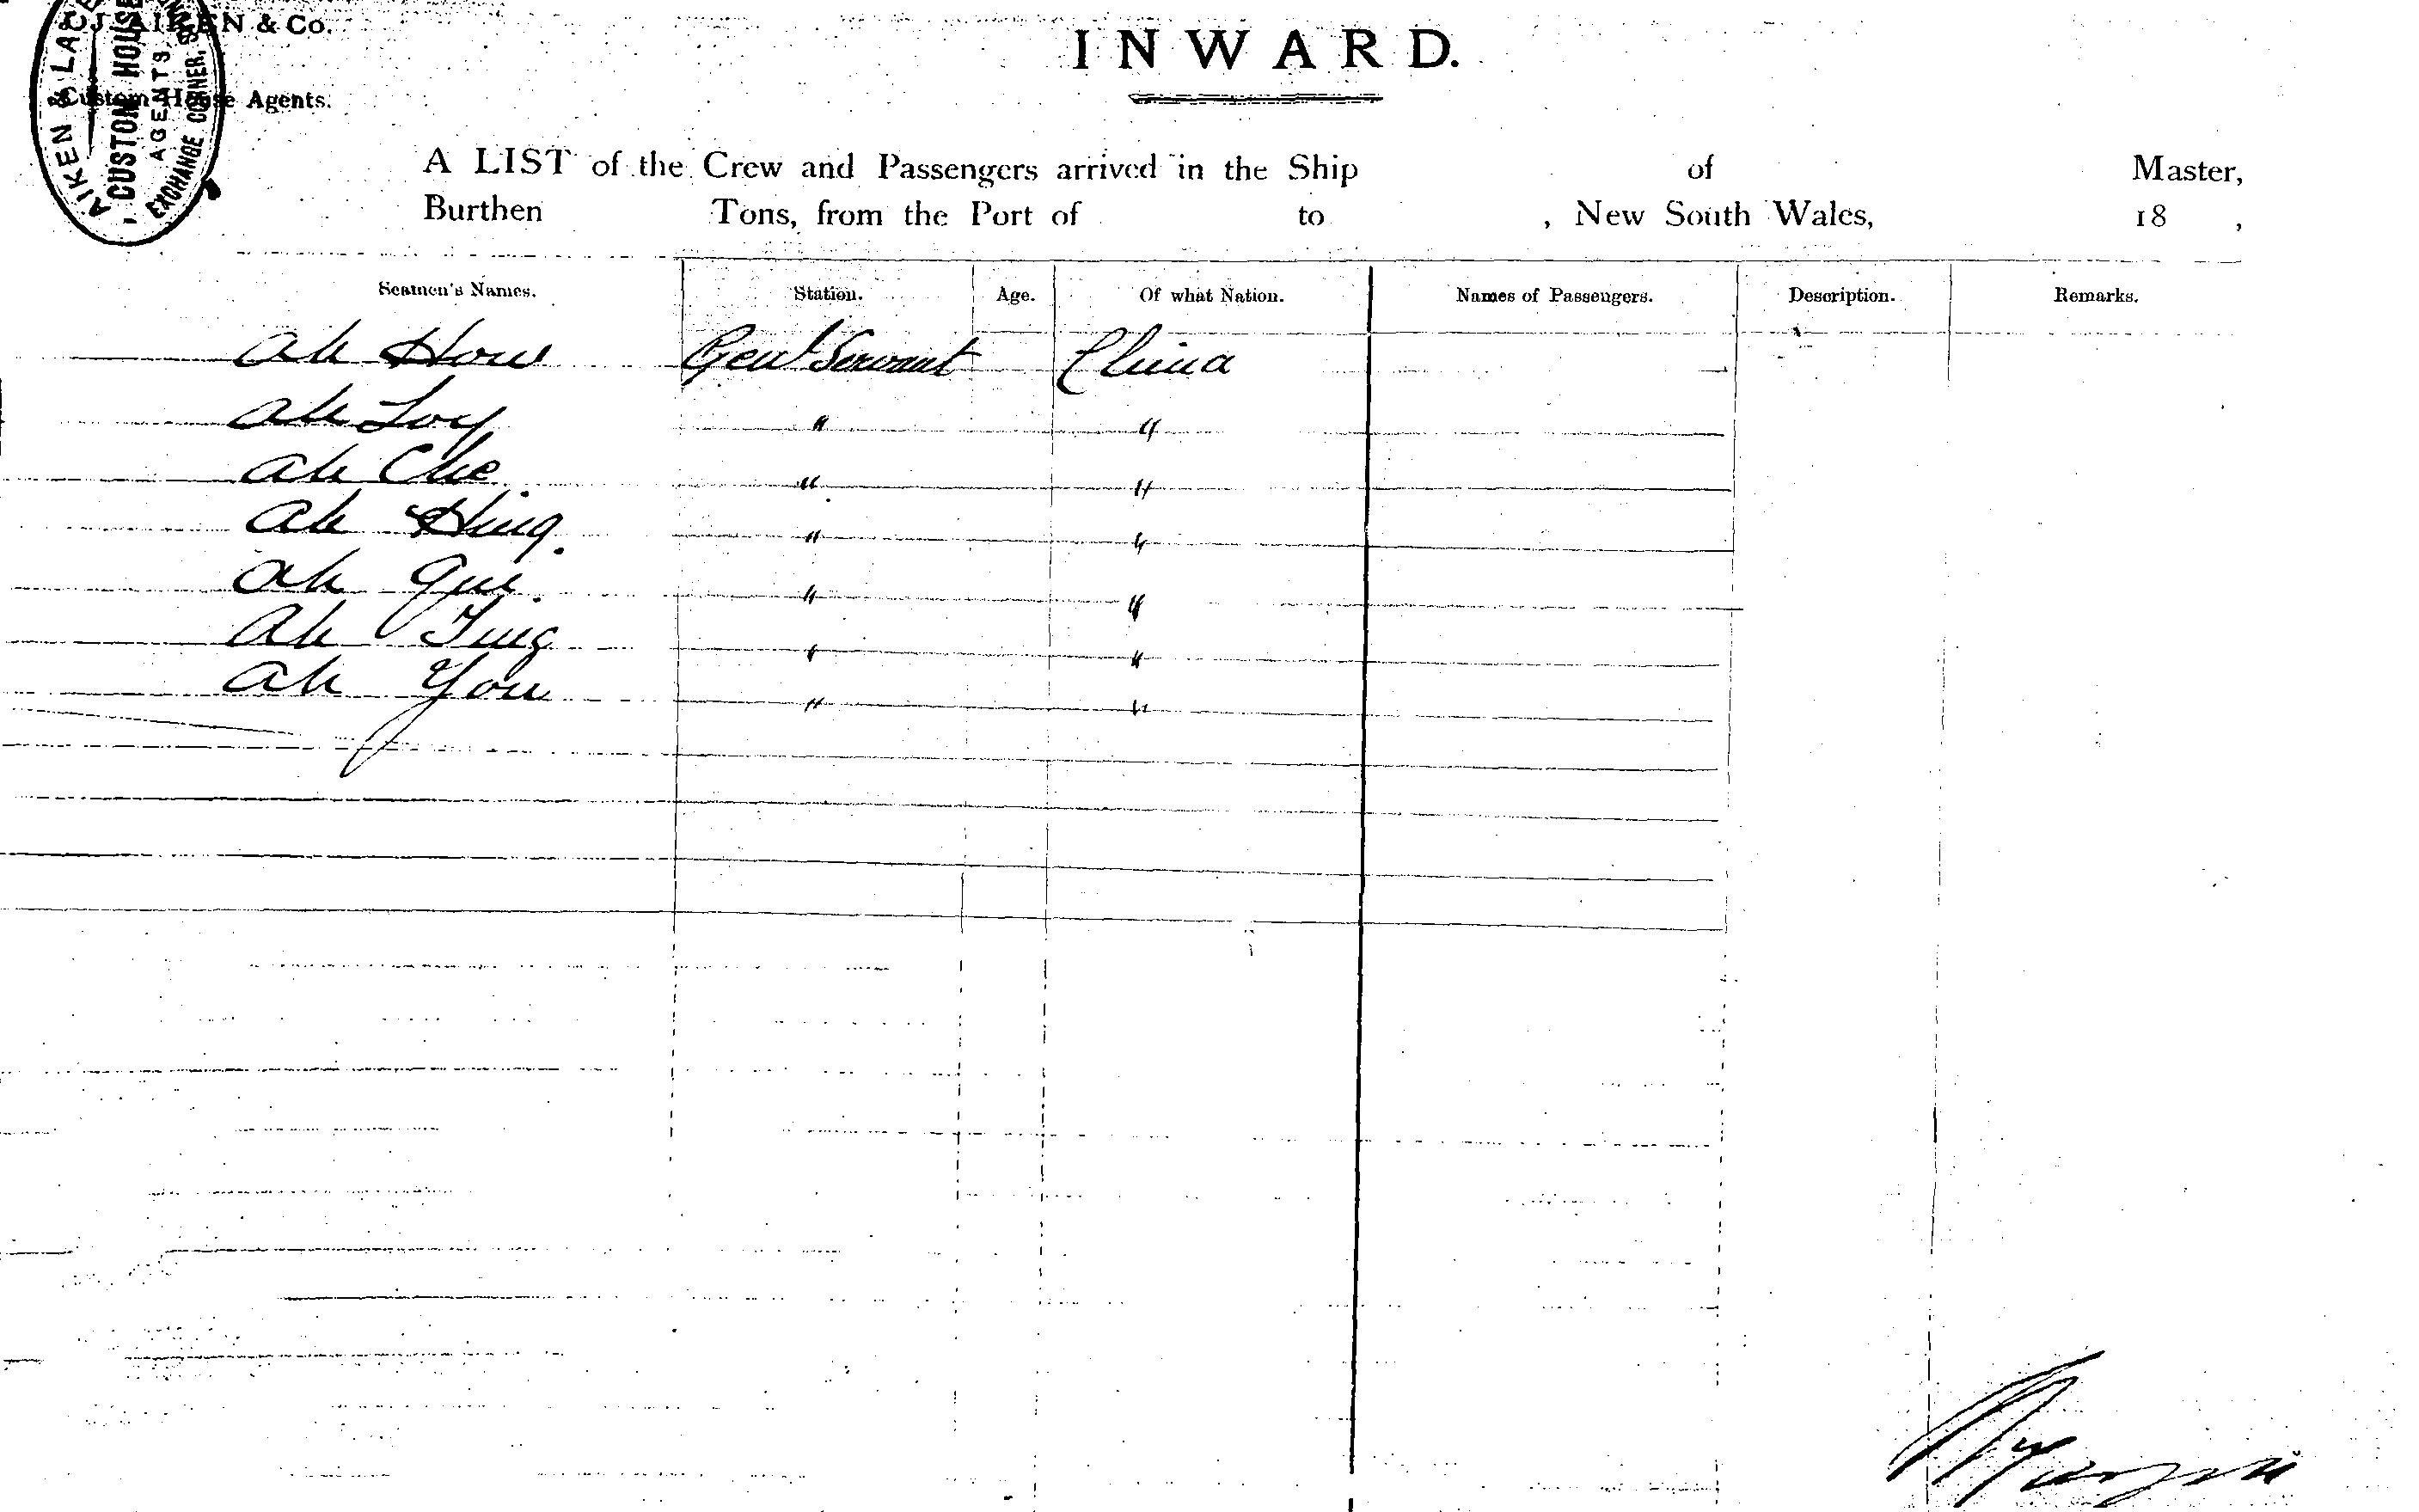 C. J. AIKEN & Co.
Custom House Agents.
AIKEN & LACE
CUSTOM HOUSE
AGENTS,
EXCHANGE CORNER,
INWARD.
A LIST of the Crew and Passengers arrived in the Ship of Master,
Burthen Tons, from the Port of to , New South Wales, 18 ,
Seamen's Names. Station. Age. Of what Nation. Names of Passengers. Description. Remarks.
Ah How Genl Servant China
Ah Loy " "
Ah Che " "
Ah Hing. " "
Ah Gui. " "
Ah Ting " "
Ah You " "